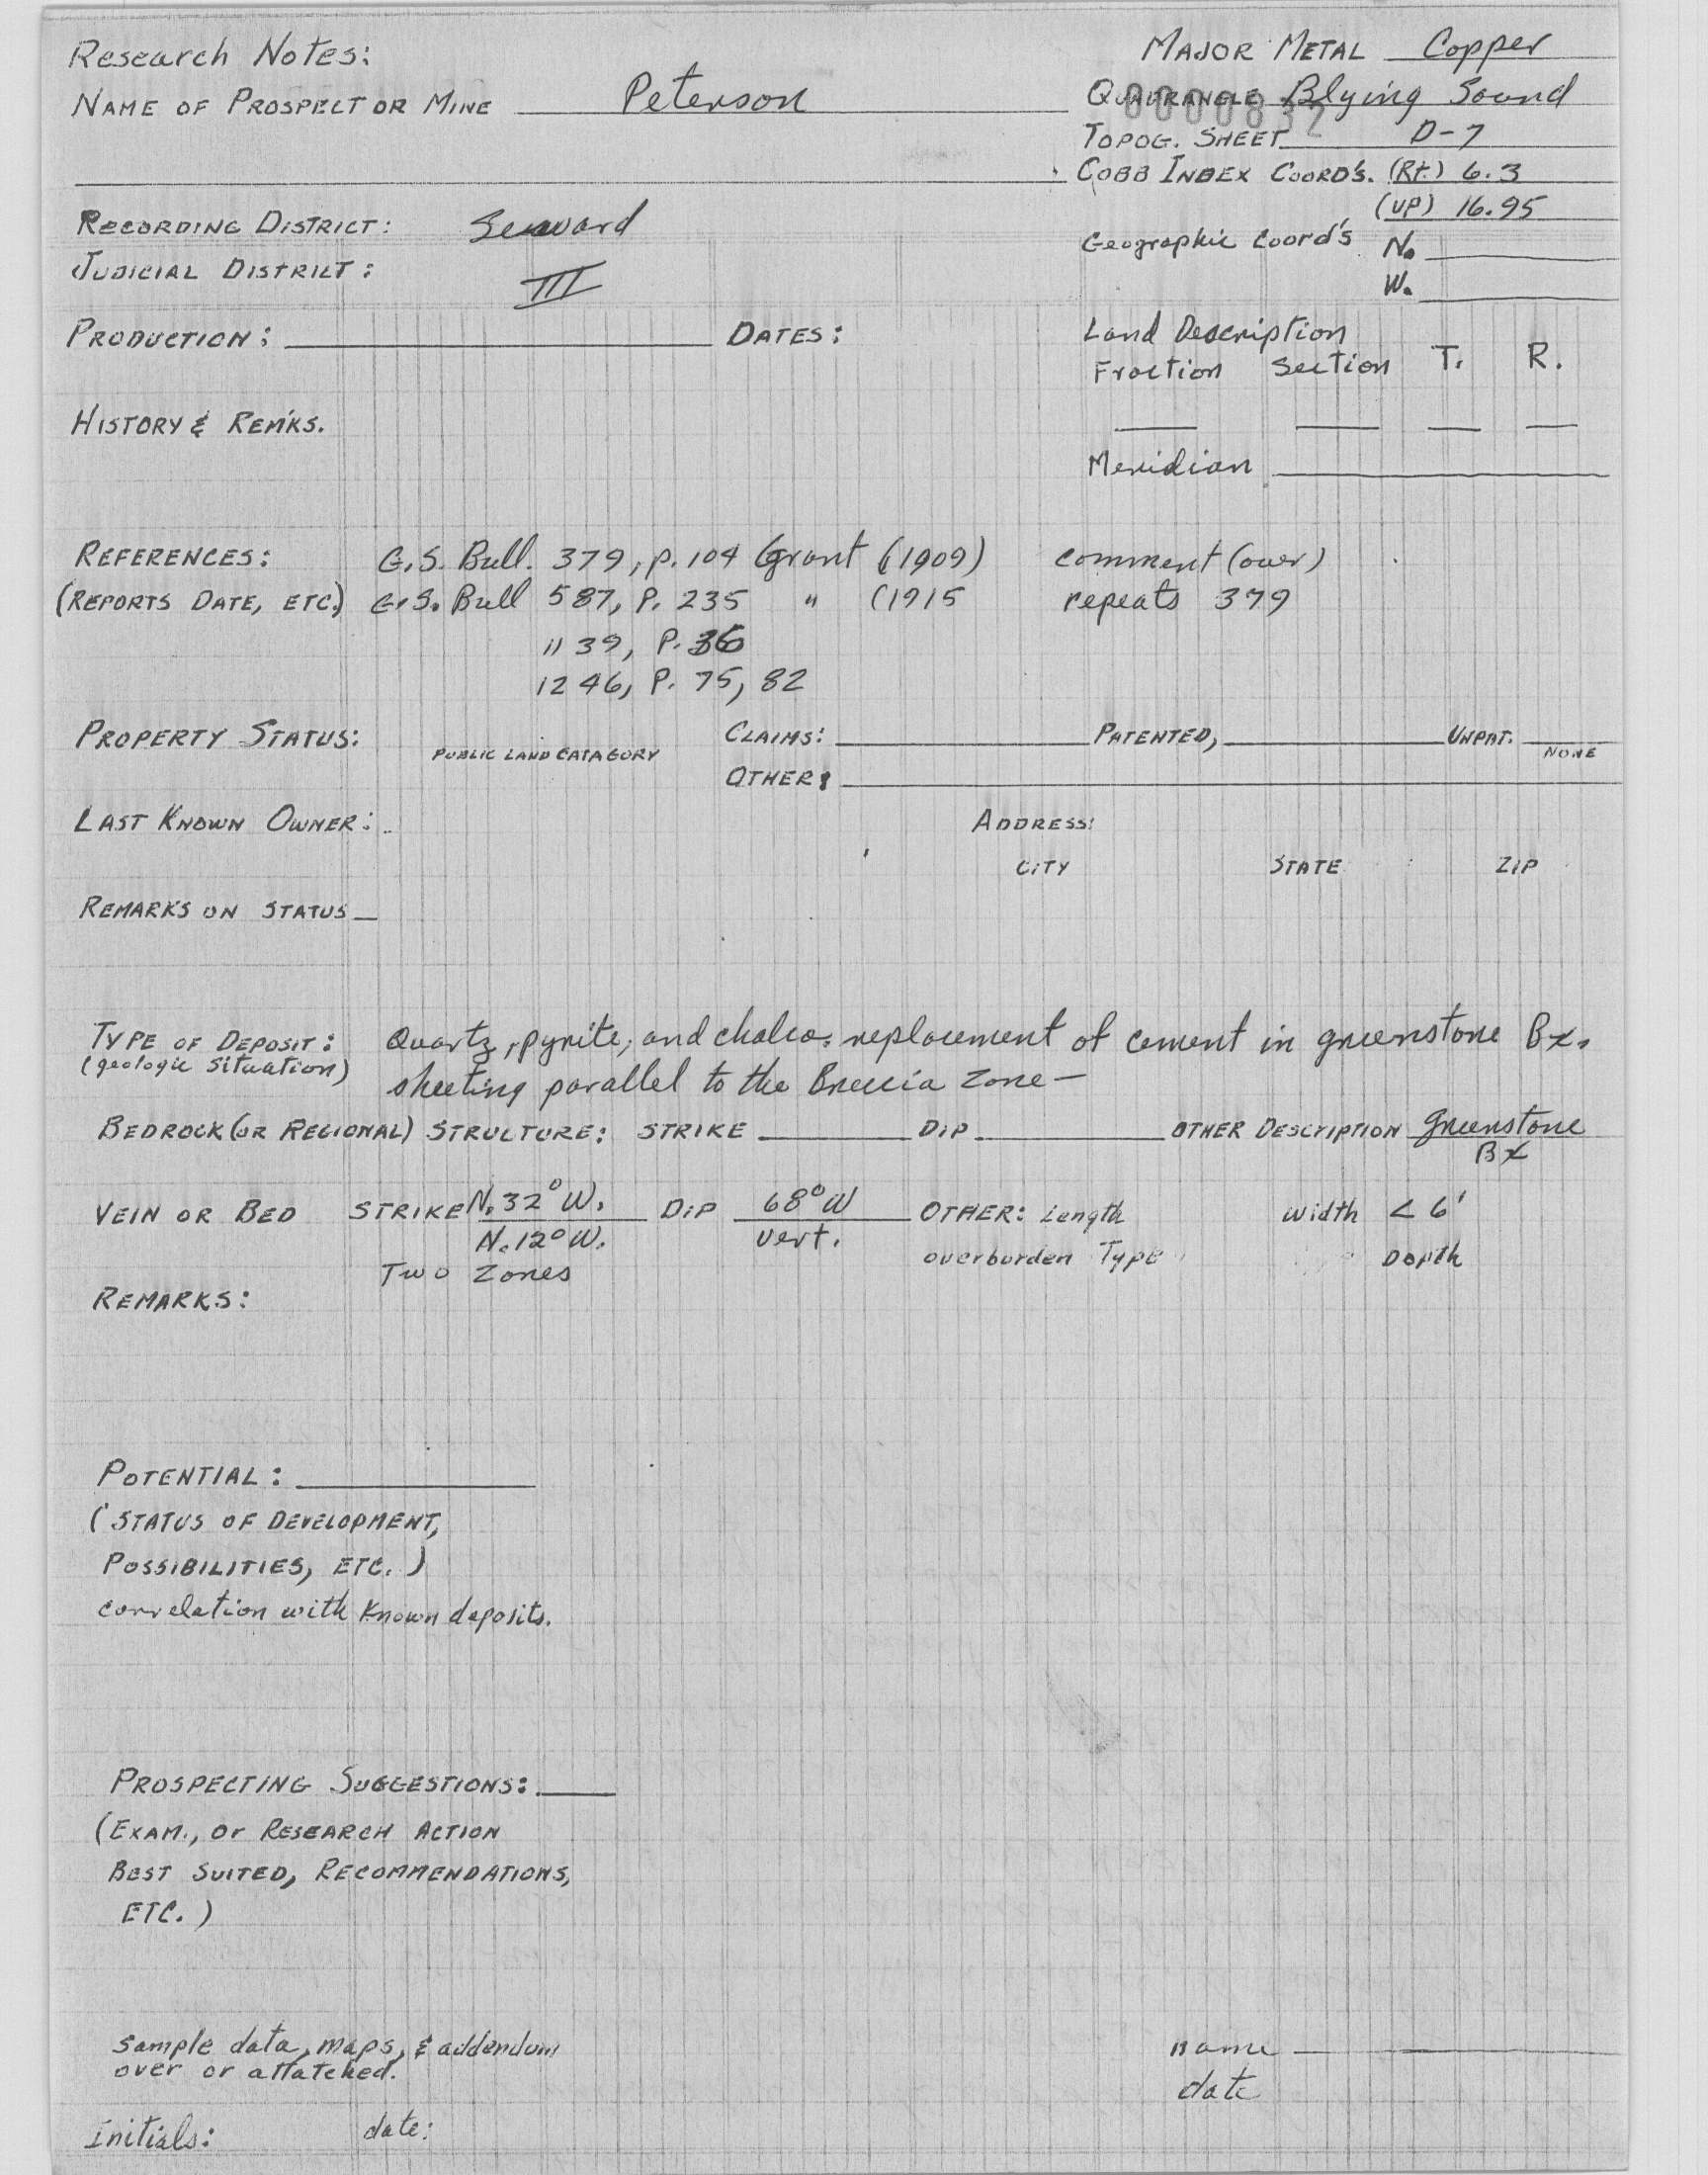 Research Notes:
MAJOR METAL Copper
NAME OF PROSPECT OR MINE Peterson
QUADRANGLE Blying Sound
0000832
TOPOG. SHEET D-7
COBB INDEX COORD'S. (Rt.) 6.3
(UP) 16.95
RECORDING DISTRICT: Seward
Geographic Coord's No
W.
JUDICIAL DISTRICT: III
PRODUCTION: DATES:
Land Description
Fraction Section T. R.
HISTORY & REM'KS.
Meridian
REFERENCES: G.S. Bull. 379, p. 104 Grant (1909) comment (over)
(REPORTS DATE, ETC.) G.S. Bull 587, P. 235 " (1915 repeats 379
1139, P. 36
1246, P. 75, 82
PROPERTY STATUS: PUBLIC LAND CATAGORY CLAIMS: PATENTED, UNPAT. NONE
OTHER:
LAST KNOWN OWNER: ADDRESS:
CITY STATE ZIP
REMARKS ON STATUS
TYPE OF DEPOSIT: Quartz, pyrite, and chalco. replacement of cement in greenstone Bx.
(geologic situation) sheeting parallel to the Breccia zone —
BEDROCK (OR REGIONAL) STRUCTURE: STRIKE DIP OTHER DESCRIPTION Greenstone
Bx
VEIN OR BED STRIKE N. 32° W. DIP 68° W OTHER: Length Width < 6'
N. 12° W. vert. overburden Type Depth
Two Zones
REMARKS:
POTENTIAL:
(STATUS OF DEVELOPMENT,
POSSIBILITIES, ETC.)
correlation with known deposits.
PROSPECTING SUGGESTIONS:
(EXAM., or RESEARCH ACTION
BEST SUITED, RECOMMENDATIONS,
ETC.)
Sample data, maps, & addendum
over or attatched.
name
date
Initials: date: